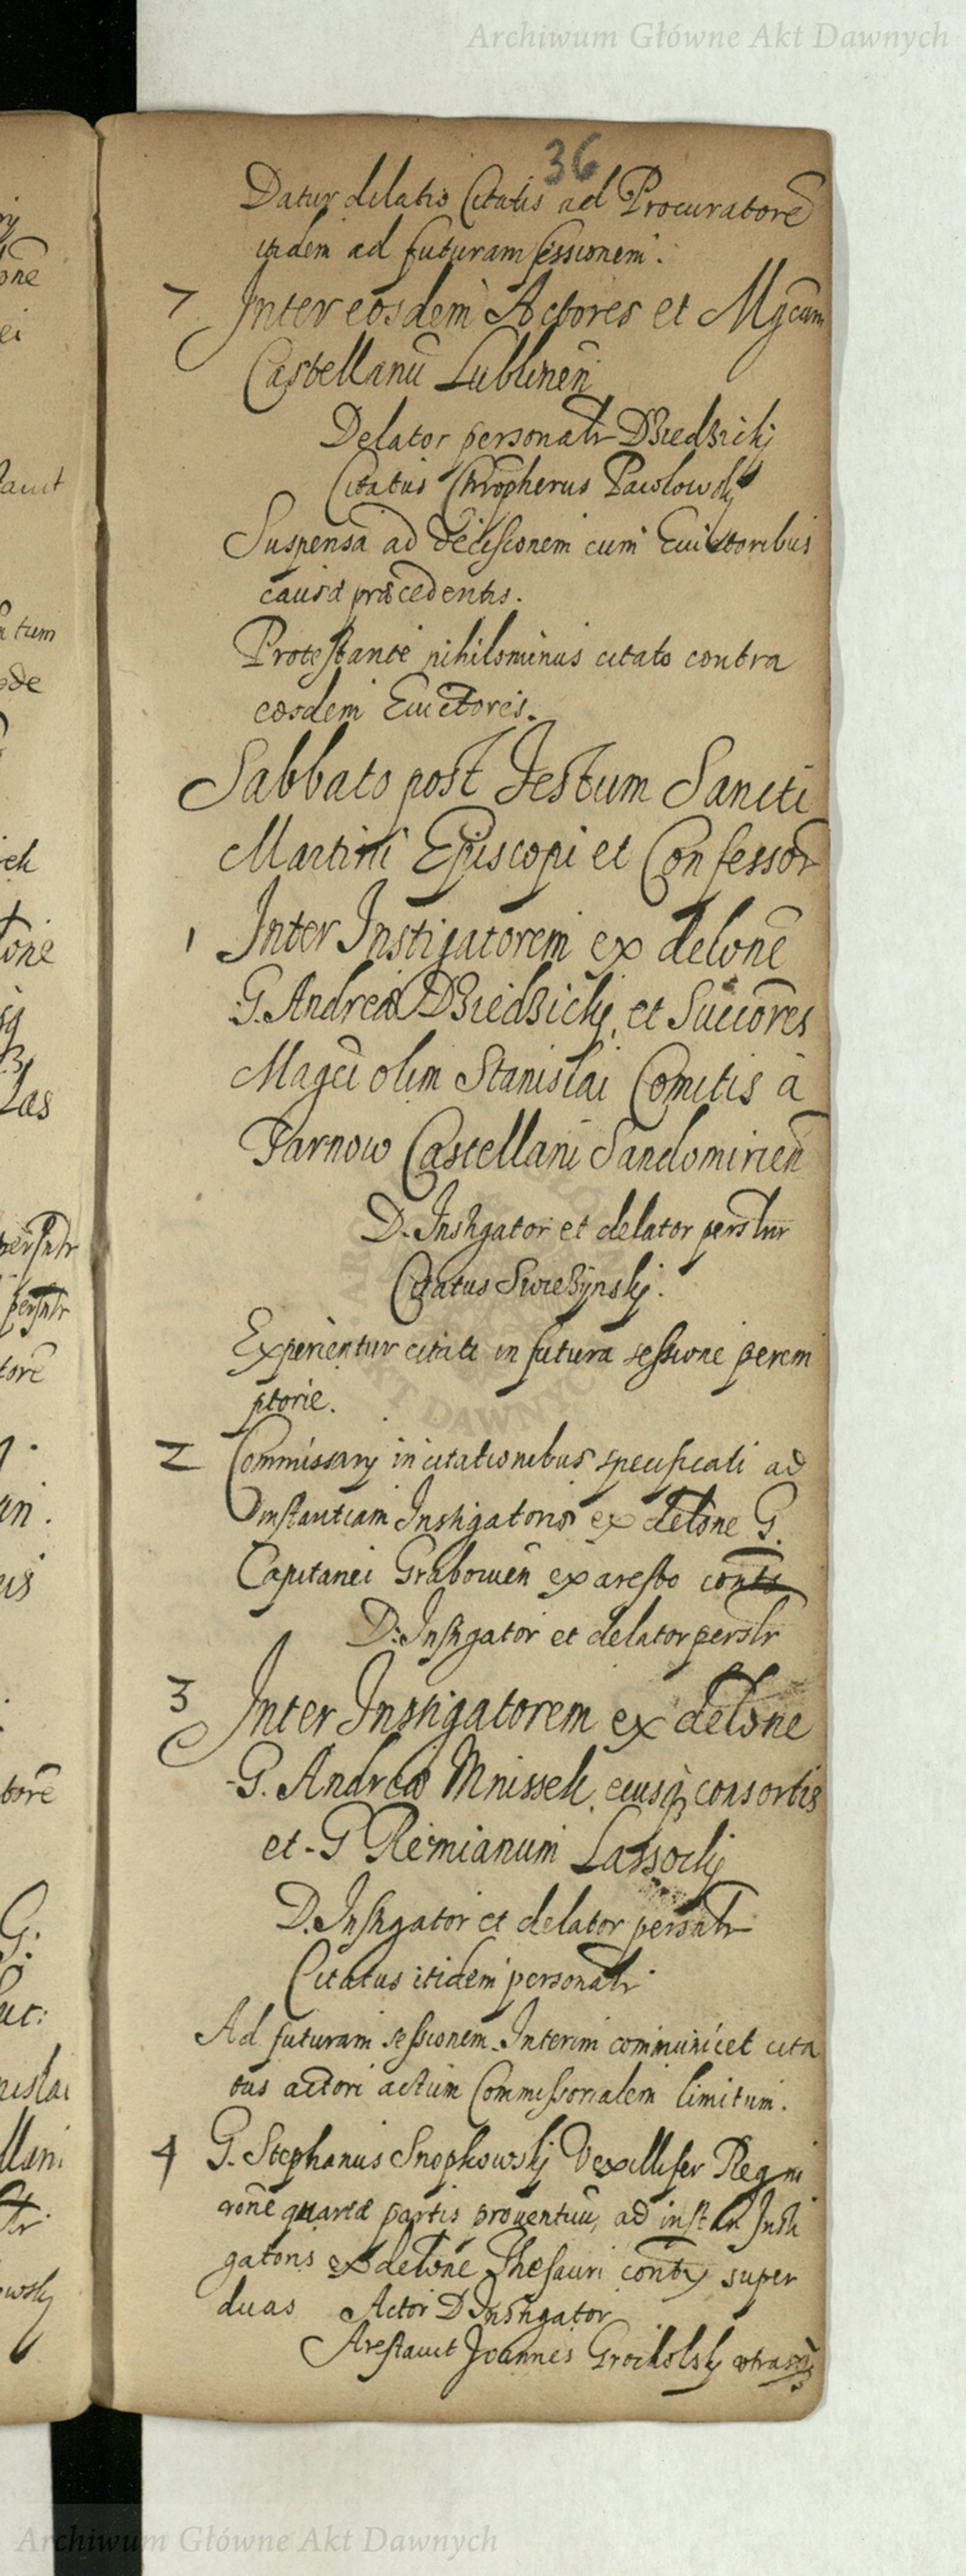 Archiwum Główne Akt Dawnych
36
Datur dilatio Citatis ad Procuratorē
itidem ad futuram sessionem.
7 Inter eosdem Actores et Mgcum
Castellanū Lublinen̄
Delator personalr DBiedBickj
Citatus Chrōpherus Pawlowskj
Suspensa ad decisionem cum Euictoribus
causæ præcedentis.
Protestante nihilominus citato contra
eosdem Euictores.
Sabbato post Festum Sancti
Martini Episcopi et Confessor
1 Inter Instigatorem ex delōne
G. Andreæ DBiedBickj, et Succōres
Magci olim Stanislai Comitis à
Tarnow Castellani Sandomirien̄
D. Instigator et delator perslnr
Citatus SwieBÿnskj.
Experientur citati in futura sessione perem
ptorie.
2 Commissarÿ in citationibus specificati ad
instantiam Instigatoris ex delōne G.
Capitanei Grabouien̄ ex aresto
D. Instigator et delator perslr
3 Inter Instigatorem ex delōne
G. Andreæ Mnissek, eiusq consortis
et G Remianum Lassockj
D. Instigator et delator personalr
Citatus itidem personalr
Ad futuram sessionem. Interim communicet cita
tus actori actum Commissorialem limitum.
4 G. Stephanus Snopkowskj Vexillifer Regni
rōne quartæ partis prouentuū, ad inst Insti
gatoris ex delōne Thesauri super
duas Actor D Instigator
Arestauit Joannes Grocholskj
Archiwum Główne Akt Dawnych